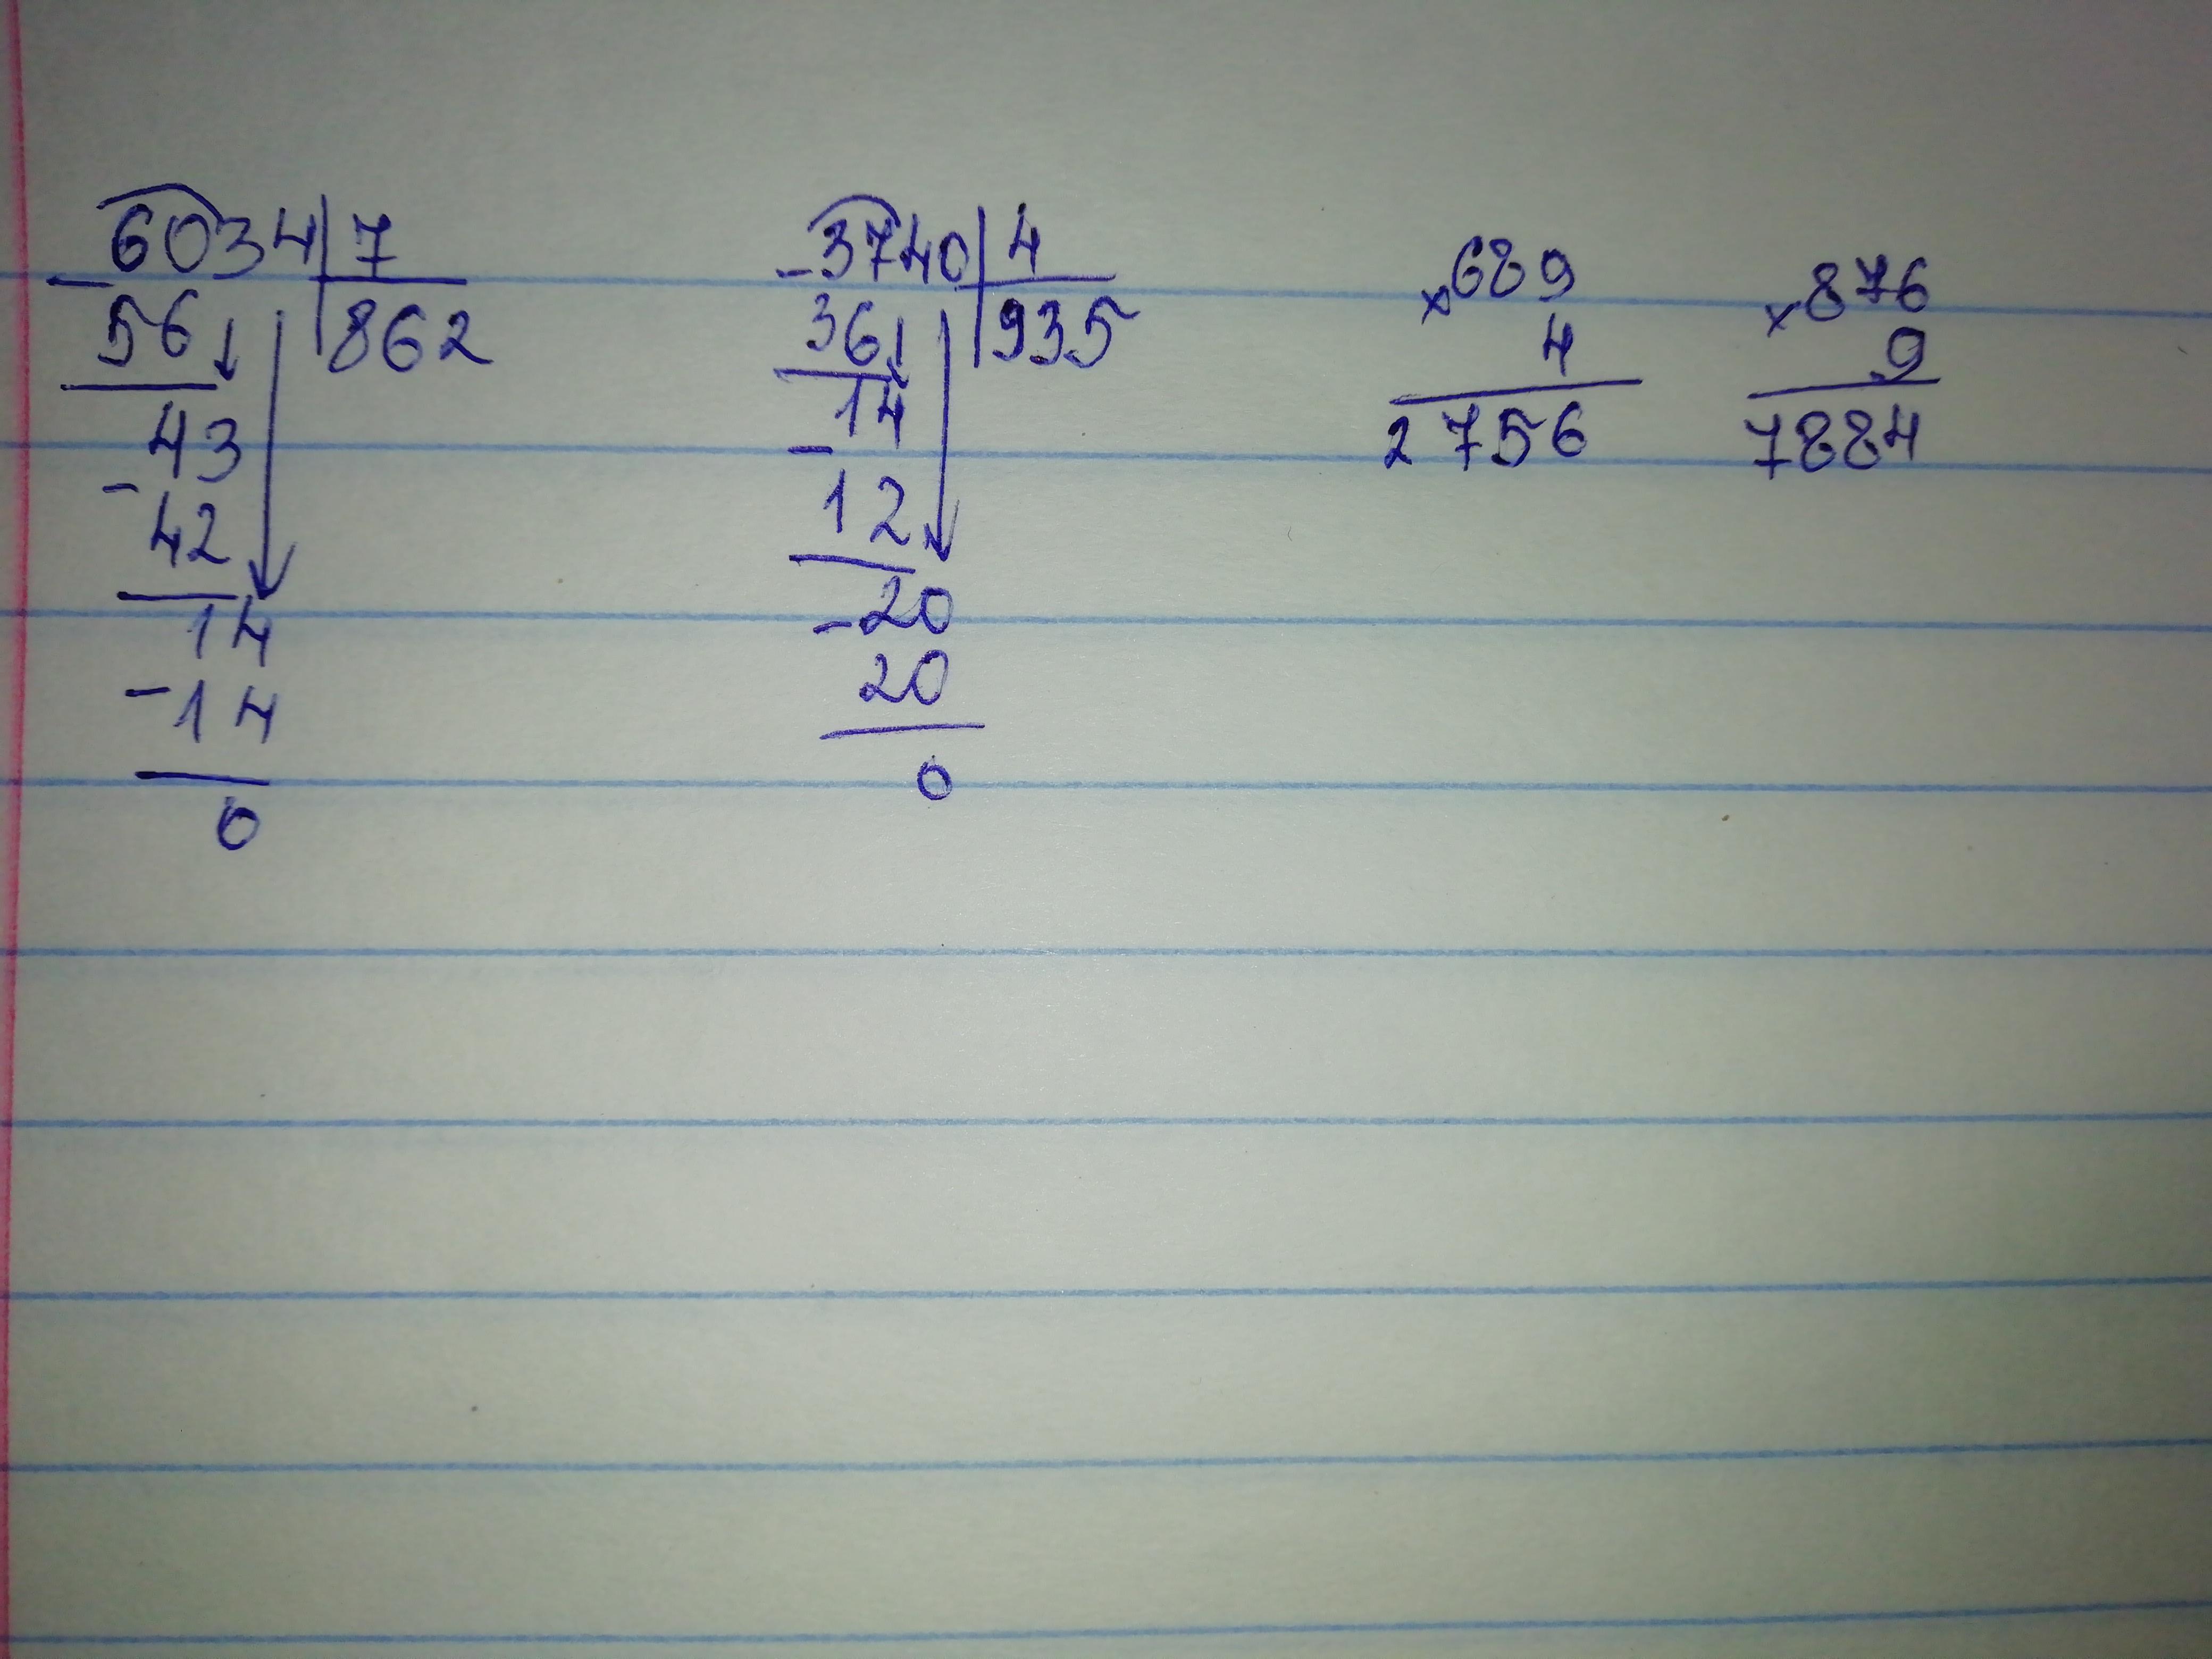 6034 7
- 56 862
43
- 42
14
- 14
0
- 3740 4
36 935
14
- 12
- 20
20
0
× 689
4
2756
× 876
9
7884